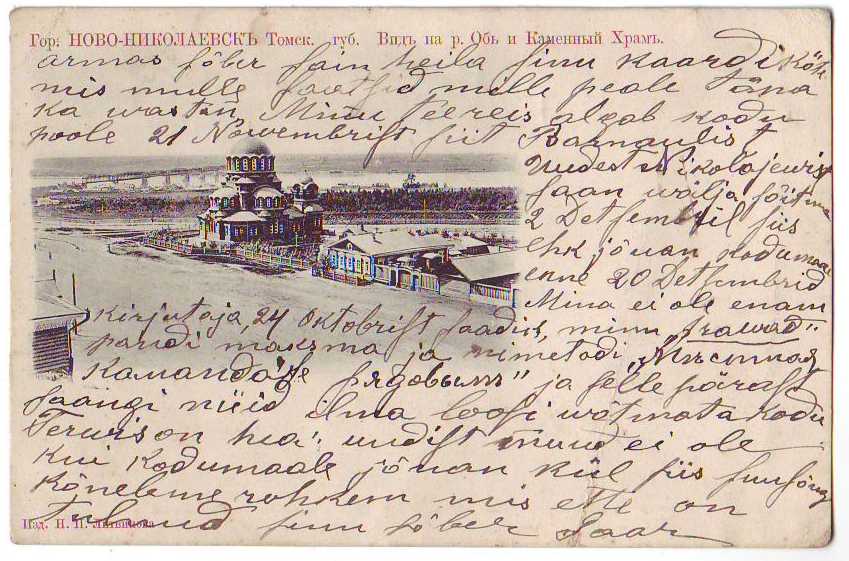 Гор. НОВО-НИКОЛАЕВСКЪ Томск. губ. Видъ на р. Обь и Каменный Храмъ.
armas sõber sain heila sinu kaardi kätte
mis mulle saatsid mille peale täna
ka wastan, Minu Seereis algab kodu
poole 21 Nowembrist siit Barnaulist
Uuest Nikolajewist
saan wälja sõitma
2 Detsembril siis
ehk jõuan kodumaale
enne 20 Detsembrid
Mina ei ole enam
kirjutaja, 24 Oktobrist saadik, minu "prawad"
pandi maksma ja nimetadi
рядовымъ" ja selle pärast
saangi nüid ilma loosi wõtmata kodu
Terwis on hea, uudist muud ei ole
kui kodumaale jõuan kül siis
kõneleme rohkem mis ette on
tulnud sinu sõber Saar
Изд. Н. П. Литвинова